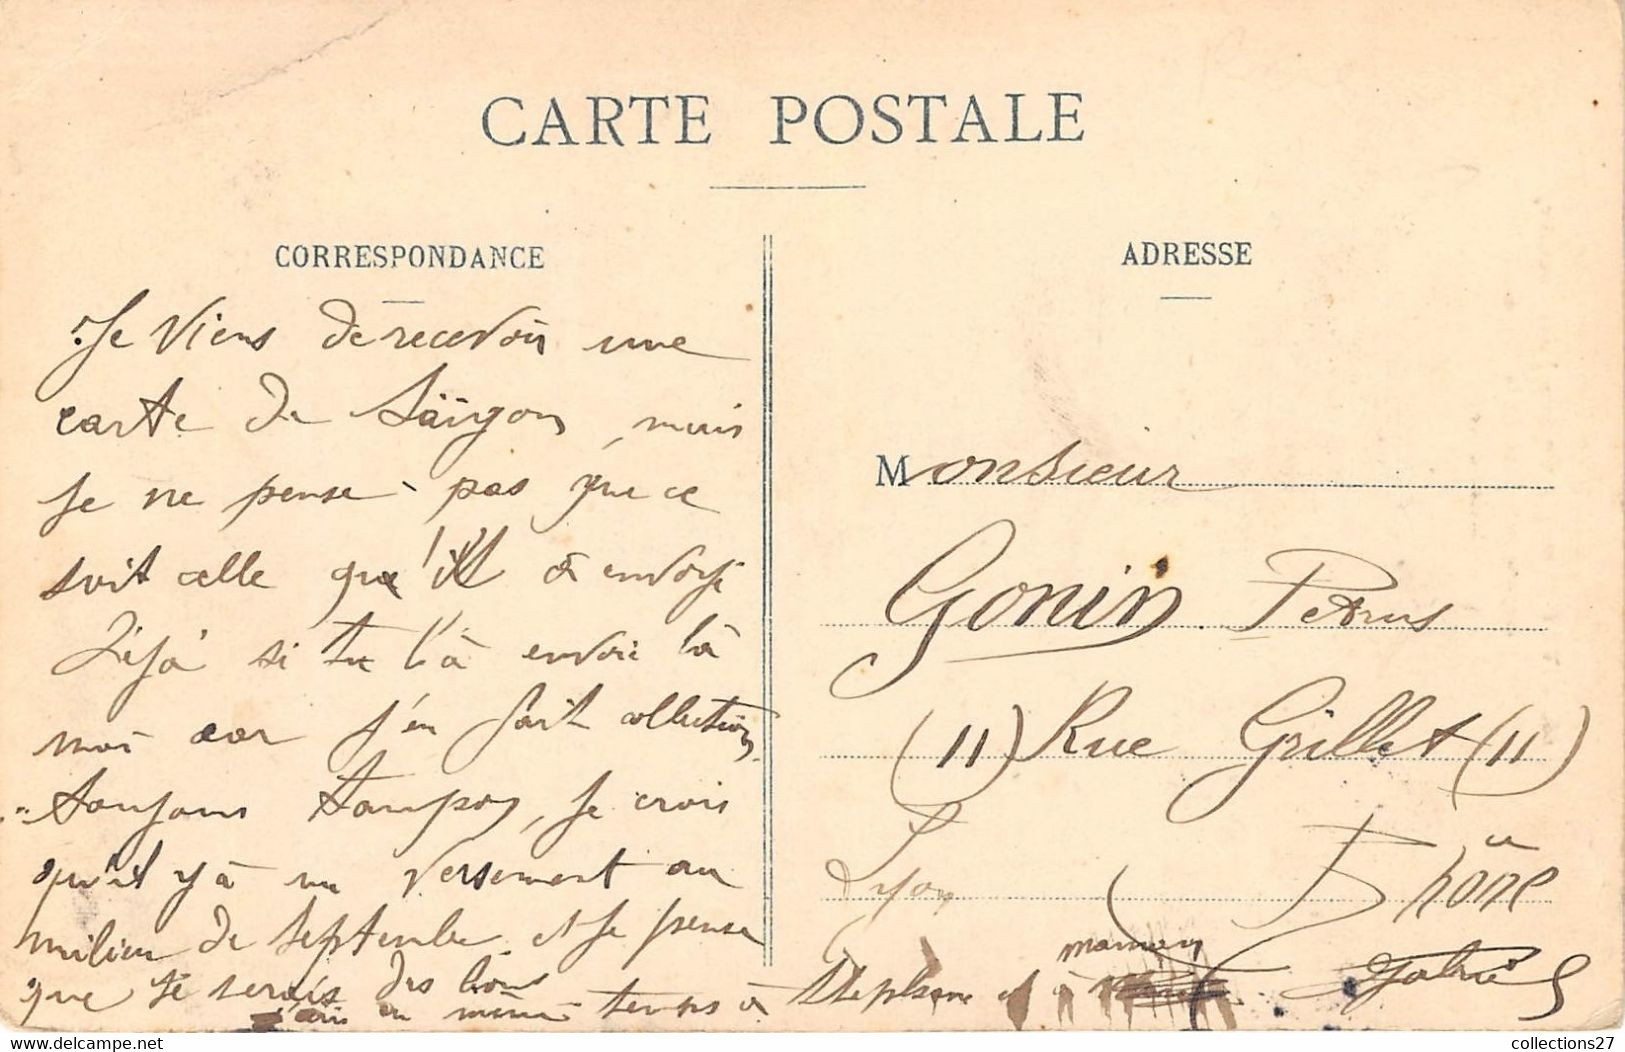 CARTE POSTALE
CORRESPONDANCE
Je viens de recevoir une
carte de Saïgon, mais
je ne pense pas que ce
soit celle qu'il à envoyé
Déjà si tu l'à envoie là
moi car j'en fait collection
toujours tampon, je crois
qu'il y à un versement au
milieu de septembre et je pense
que je serais des bons
en même temps à Stéphane et à
maman
ADRESSE
Monsieur
Gonin Petrus
(11) Rue Grillet (11)
Lyon Rhône
collections27